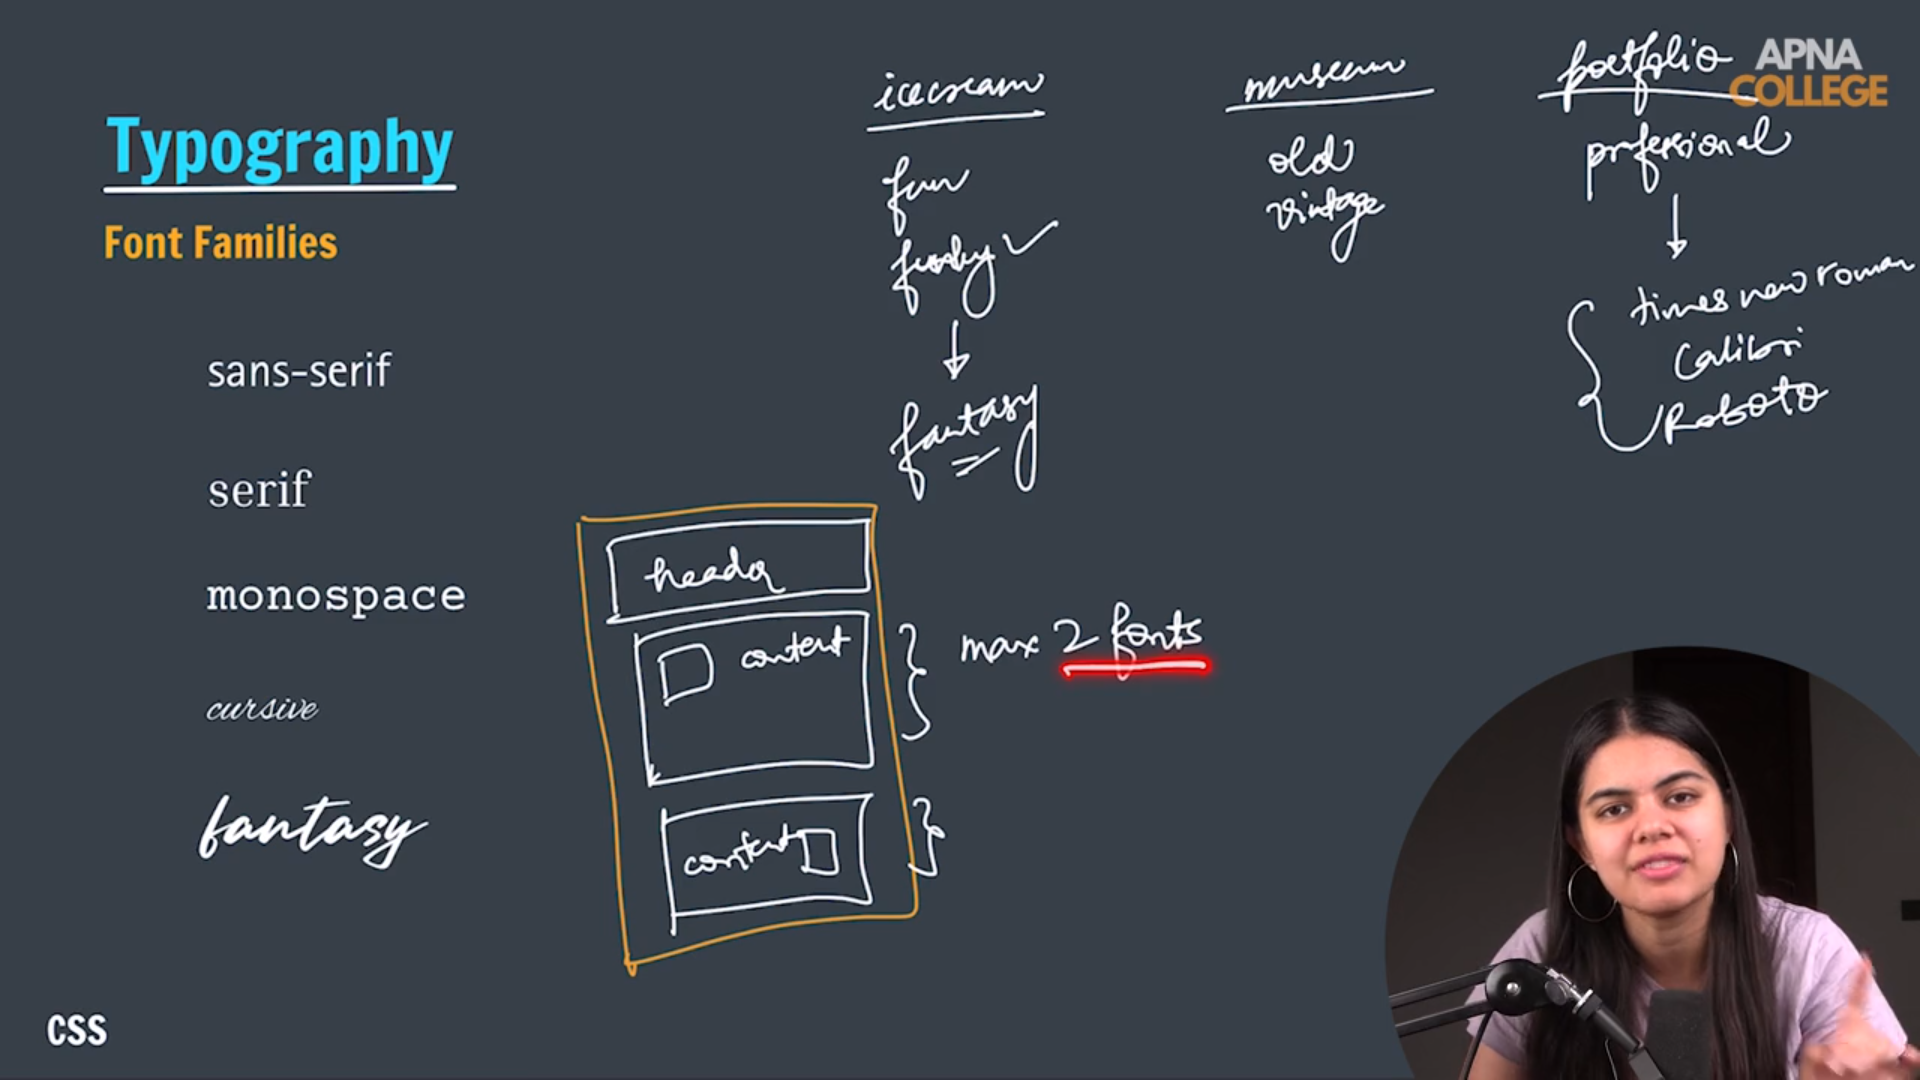 Typography
Font Families
sans-serif
serif
monospace
cursive
fantasy
CSS
icecream
fun
funky
fantasy
museum
old
vintage
portfolio
professional
times new roman
Calibri
Roboto
header
content
content
max 2 fonts
APNA
COLLEGE